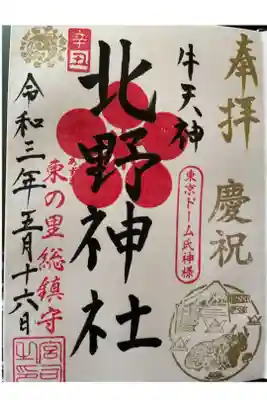 奉拝
慶祝
牛天神
東京ドーム氏神様
辛丑
北野神社
東の里総鎮守
令和三年五月十六日